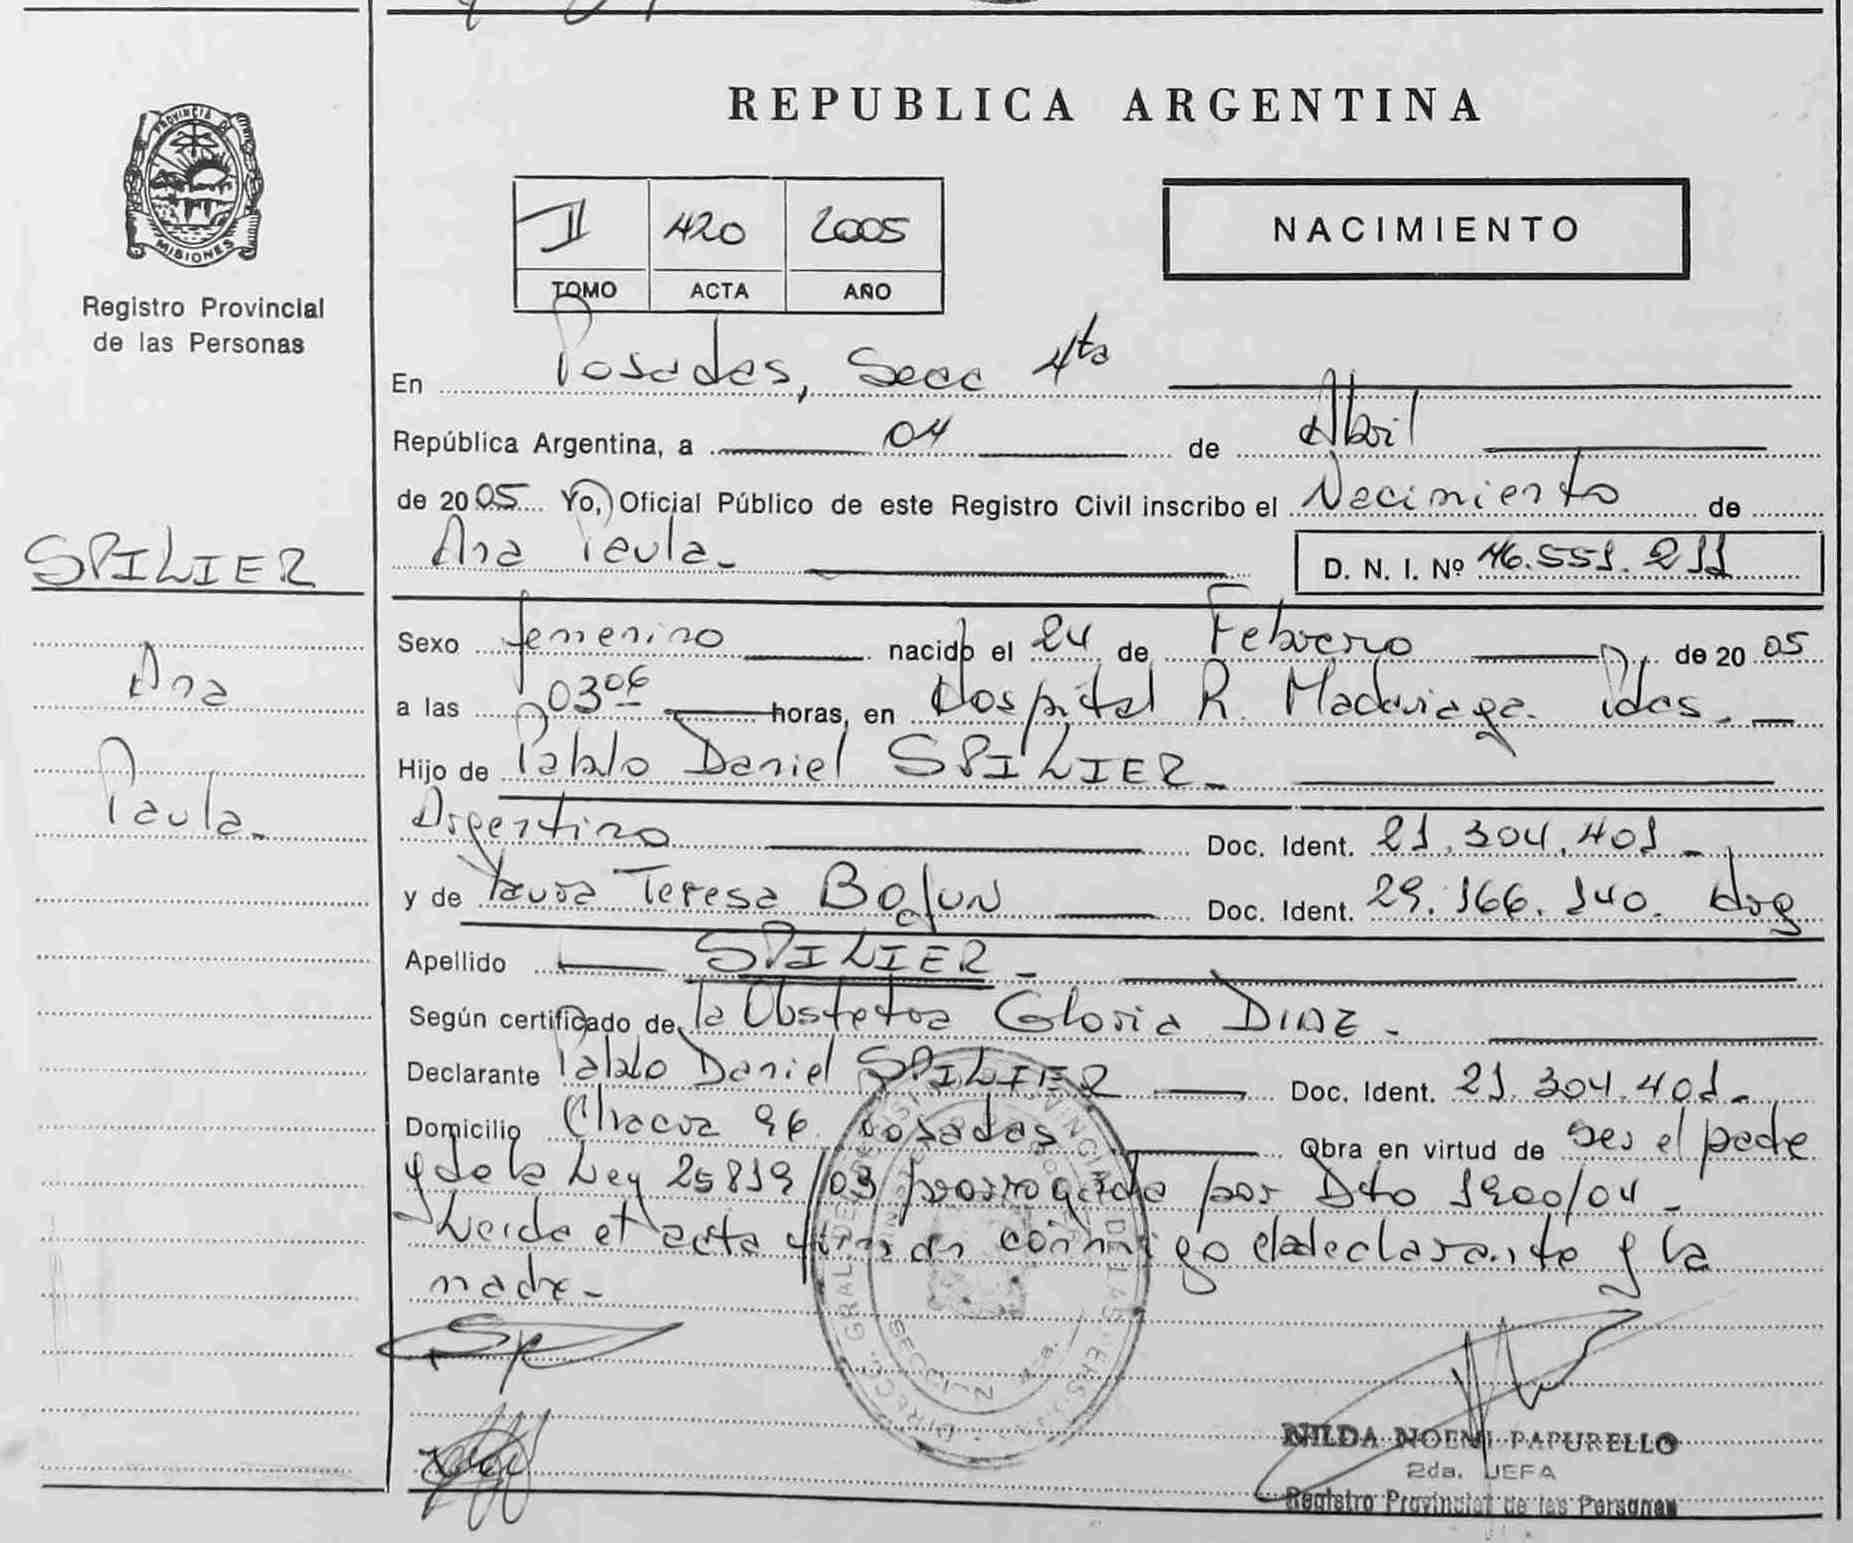 PROVINCIA DE
MISIONES
Registro Provincial
de las Personas
SPILIER
Ana
Paula.
REPUBLICA ARGENTINA
II 420 2005
TOMO ACTA AÑO
NACIMIENTO
En Posadas, Secc 4ta
República Argentina, a 04 de Abril
de 2005 Yo, Oficial Público de este Registro Civil inscribo el Nacimiento de
Ana Paula. D. N. I. Nº 46.551.211
Sexo femenino nacido el 24 de Febrero de 2005
a las 03 06 horas, en Hospital R. Madariaga. Pdas.
Hijo de Pablo Daniel SPILIER
Argentino Doc. Ident. 21.304.401
y de Laura Teresa Doc. Ident. 29.166.140. Arg
Apellido SPILIER
Según certificado de la Obstetra Gloria DIAZ
Declarante Pablo Daniel SPILIER Doc. Ident. 21.304.401
Domicilio Chacra 96 Posadas Obra en virtud de ser el padre
y de la Ley 25819/03 prorrogada por Dto 1900/04
Leida el acta firman conmigo declarante y la
madre
NILDA NOEMI PAPURELLO
2da. JEFA
Registro Provincial de las Personas